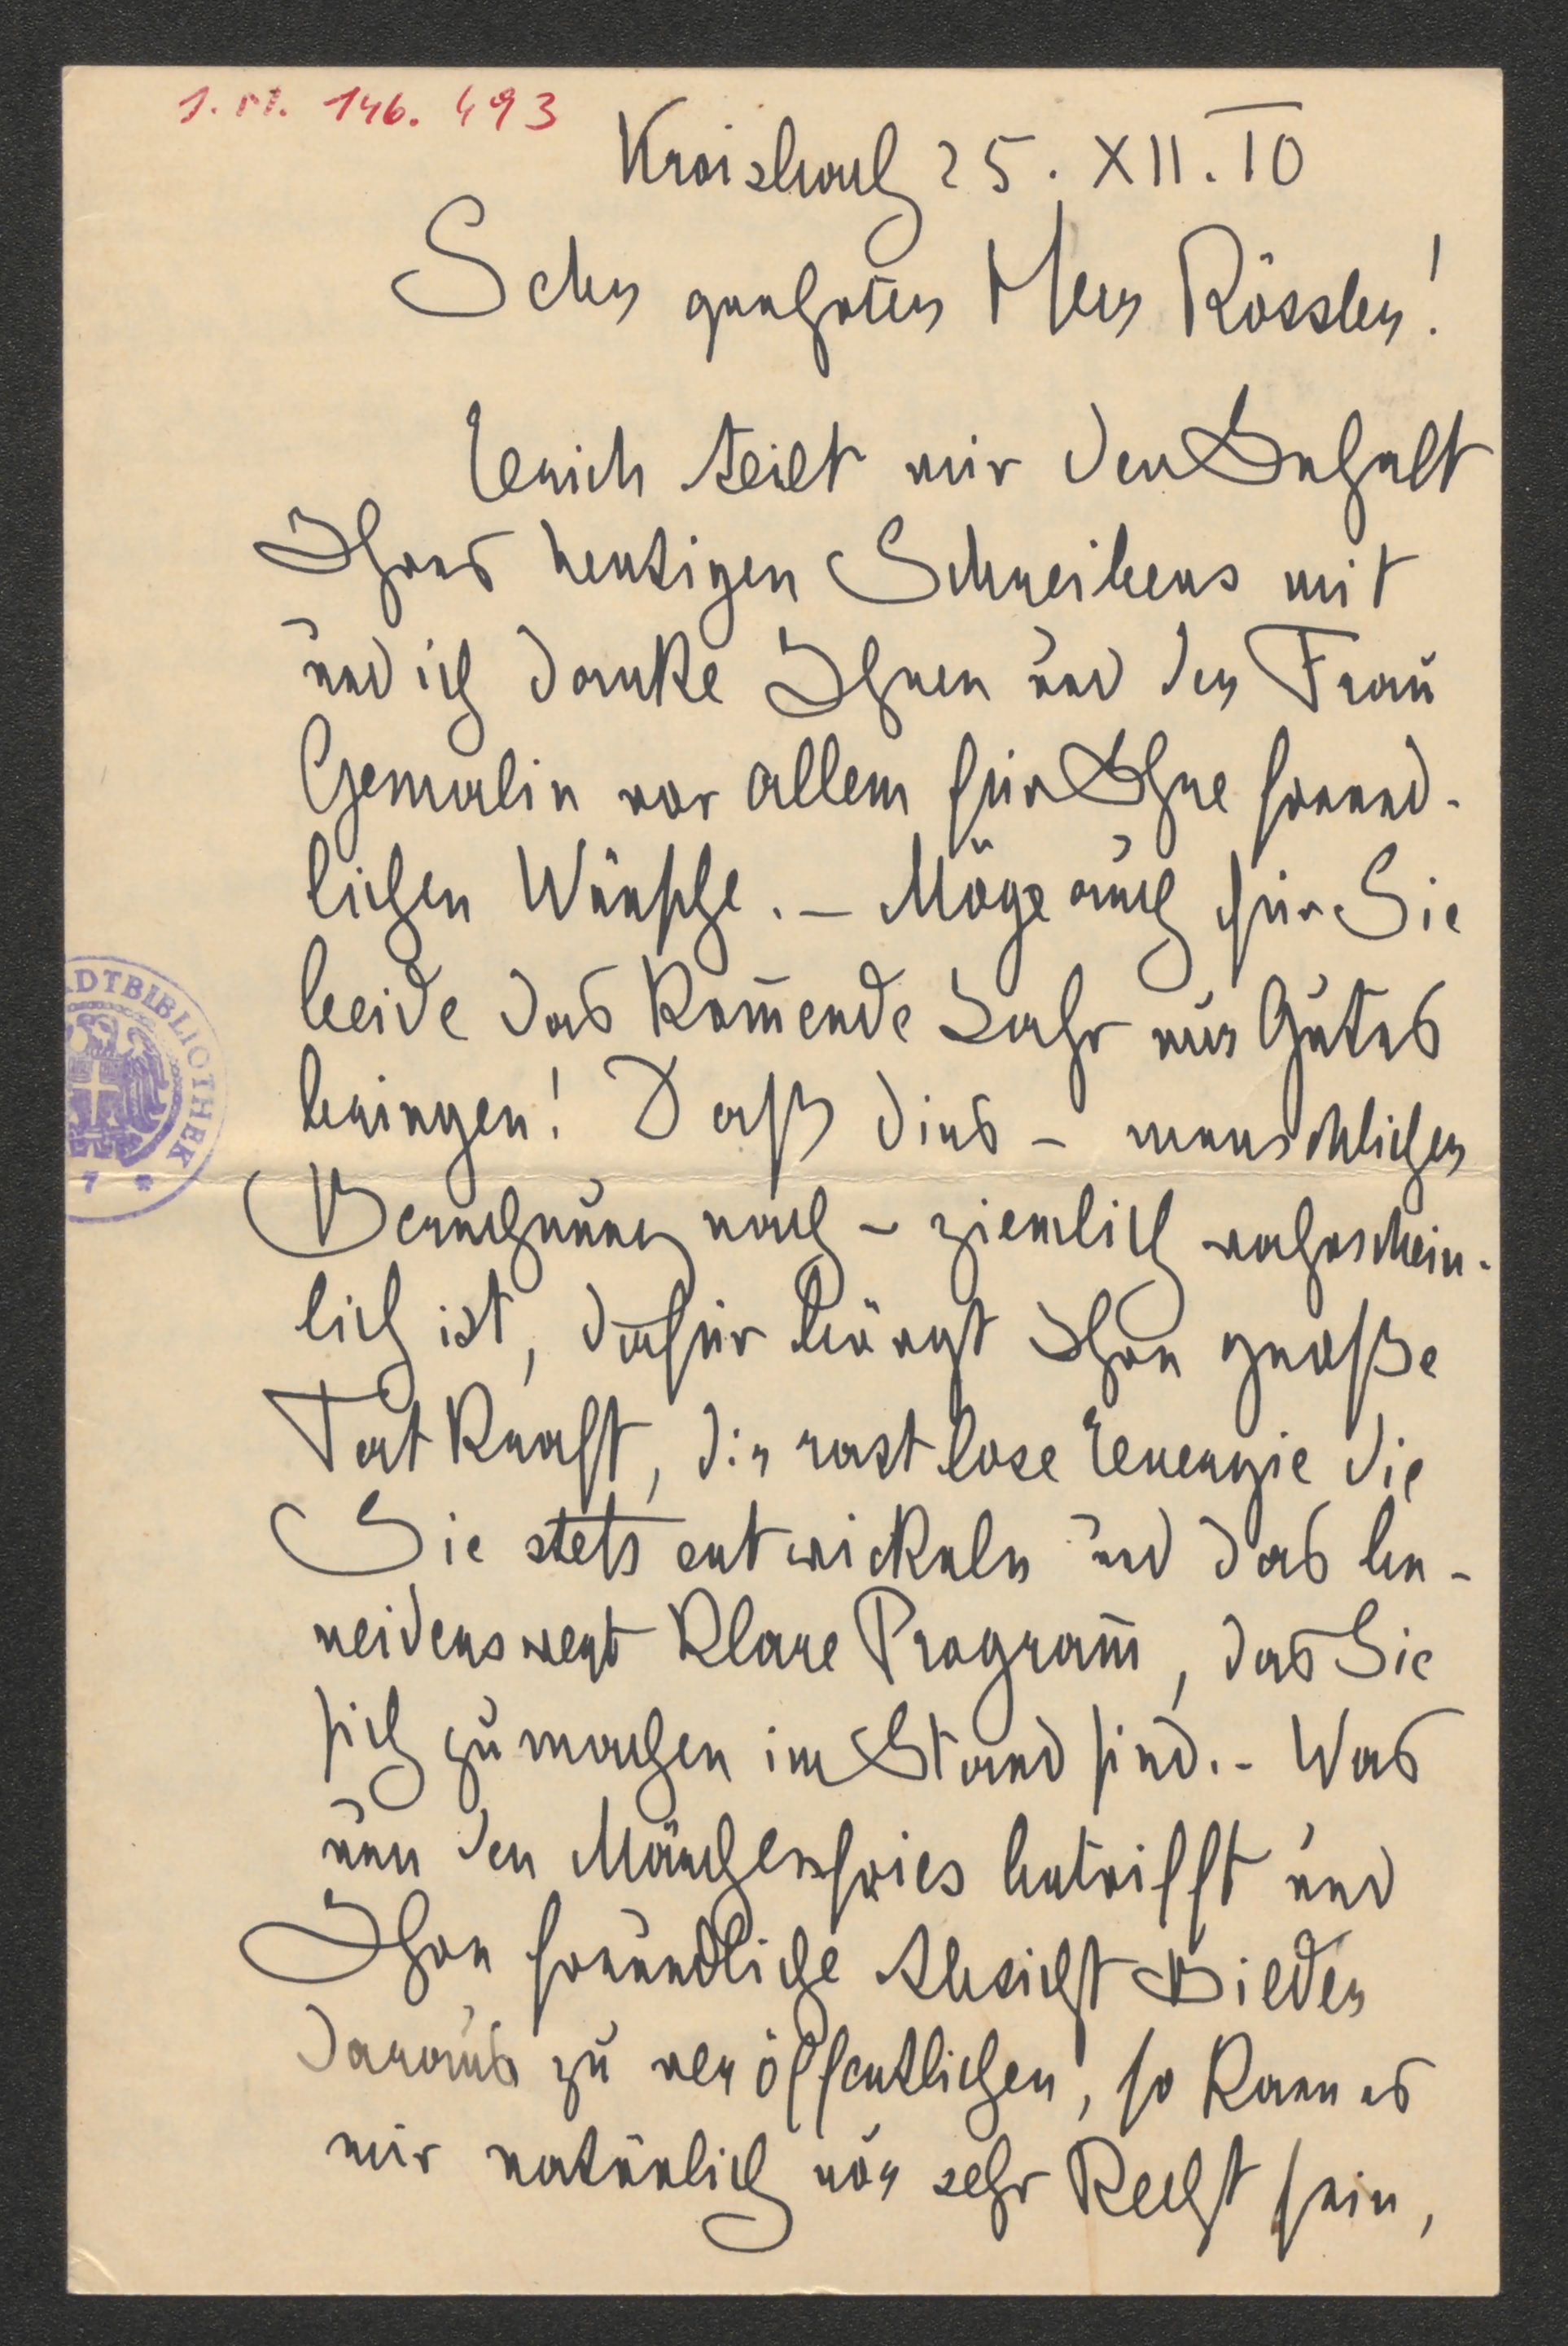 I. N. 146.493
Kroisbach 25. XII. 10
Sehr geehrter Herr Rössler!
Erich teilt mir den Inhalt
Ihres heutigen Schreibens mit
und ich danke Ihnen und der Frau
Gemalin vor allem für Ihre freund-
lichen Wünsche. – Möge auch für Sie
beide das kom̄ende Jahr nur Gutes
bringen! Daß dies – menschlicher
Berechnung nach – ziemlich wahrschein-
lich ist, dafür bürgt Ihre große
Tatkraft, die rastlose Energie die
Sie stets entwickeln und das be-
neidenswert klare Program̄, das Sie
sich zu machen im Stand sind. – Was
nun den Märchenfries betrifft und
Ihre freundliche Absicht Bilder
daraus zu veröffentlichen, so kann es
mir natürlich nur sehr Recht sein,
ADTBIBLIOTHEK
7 *